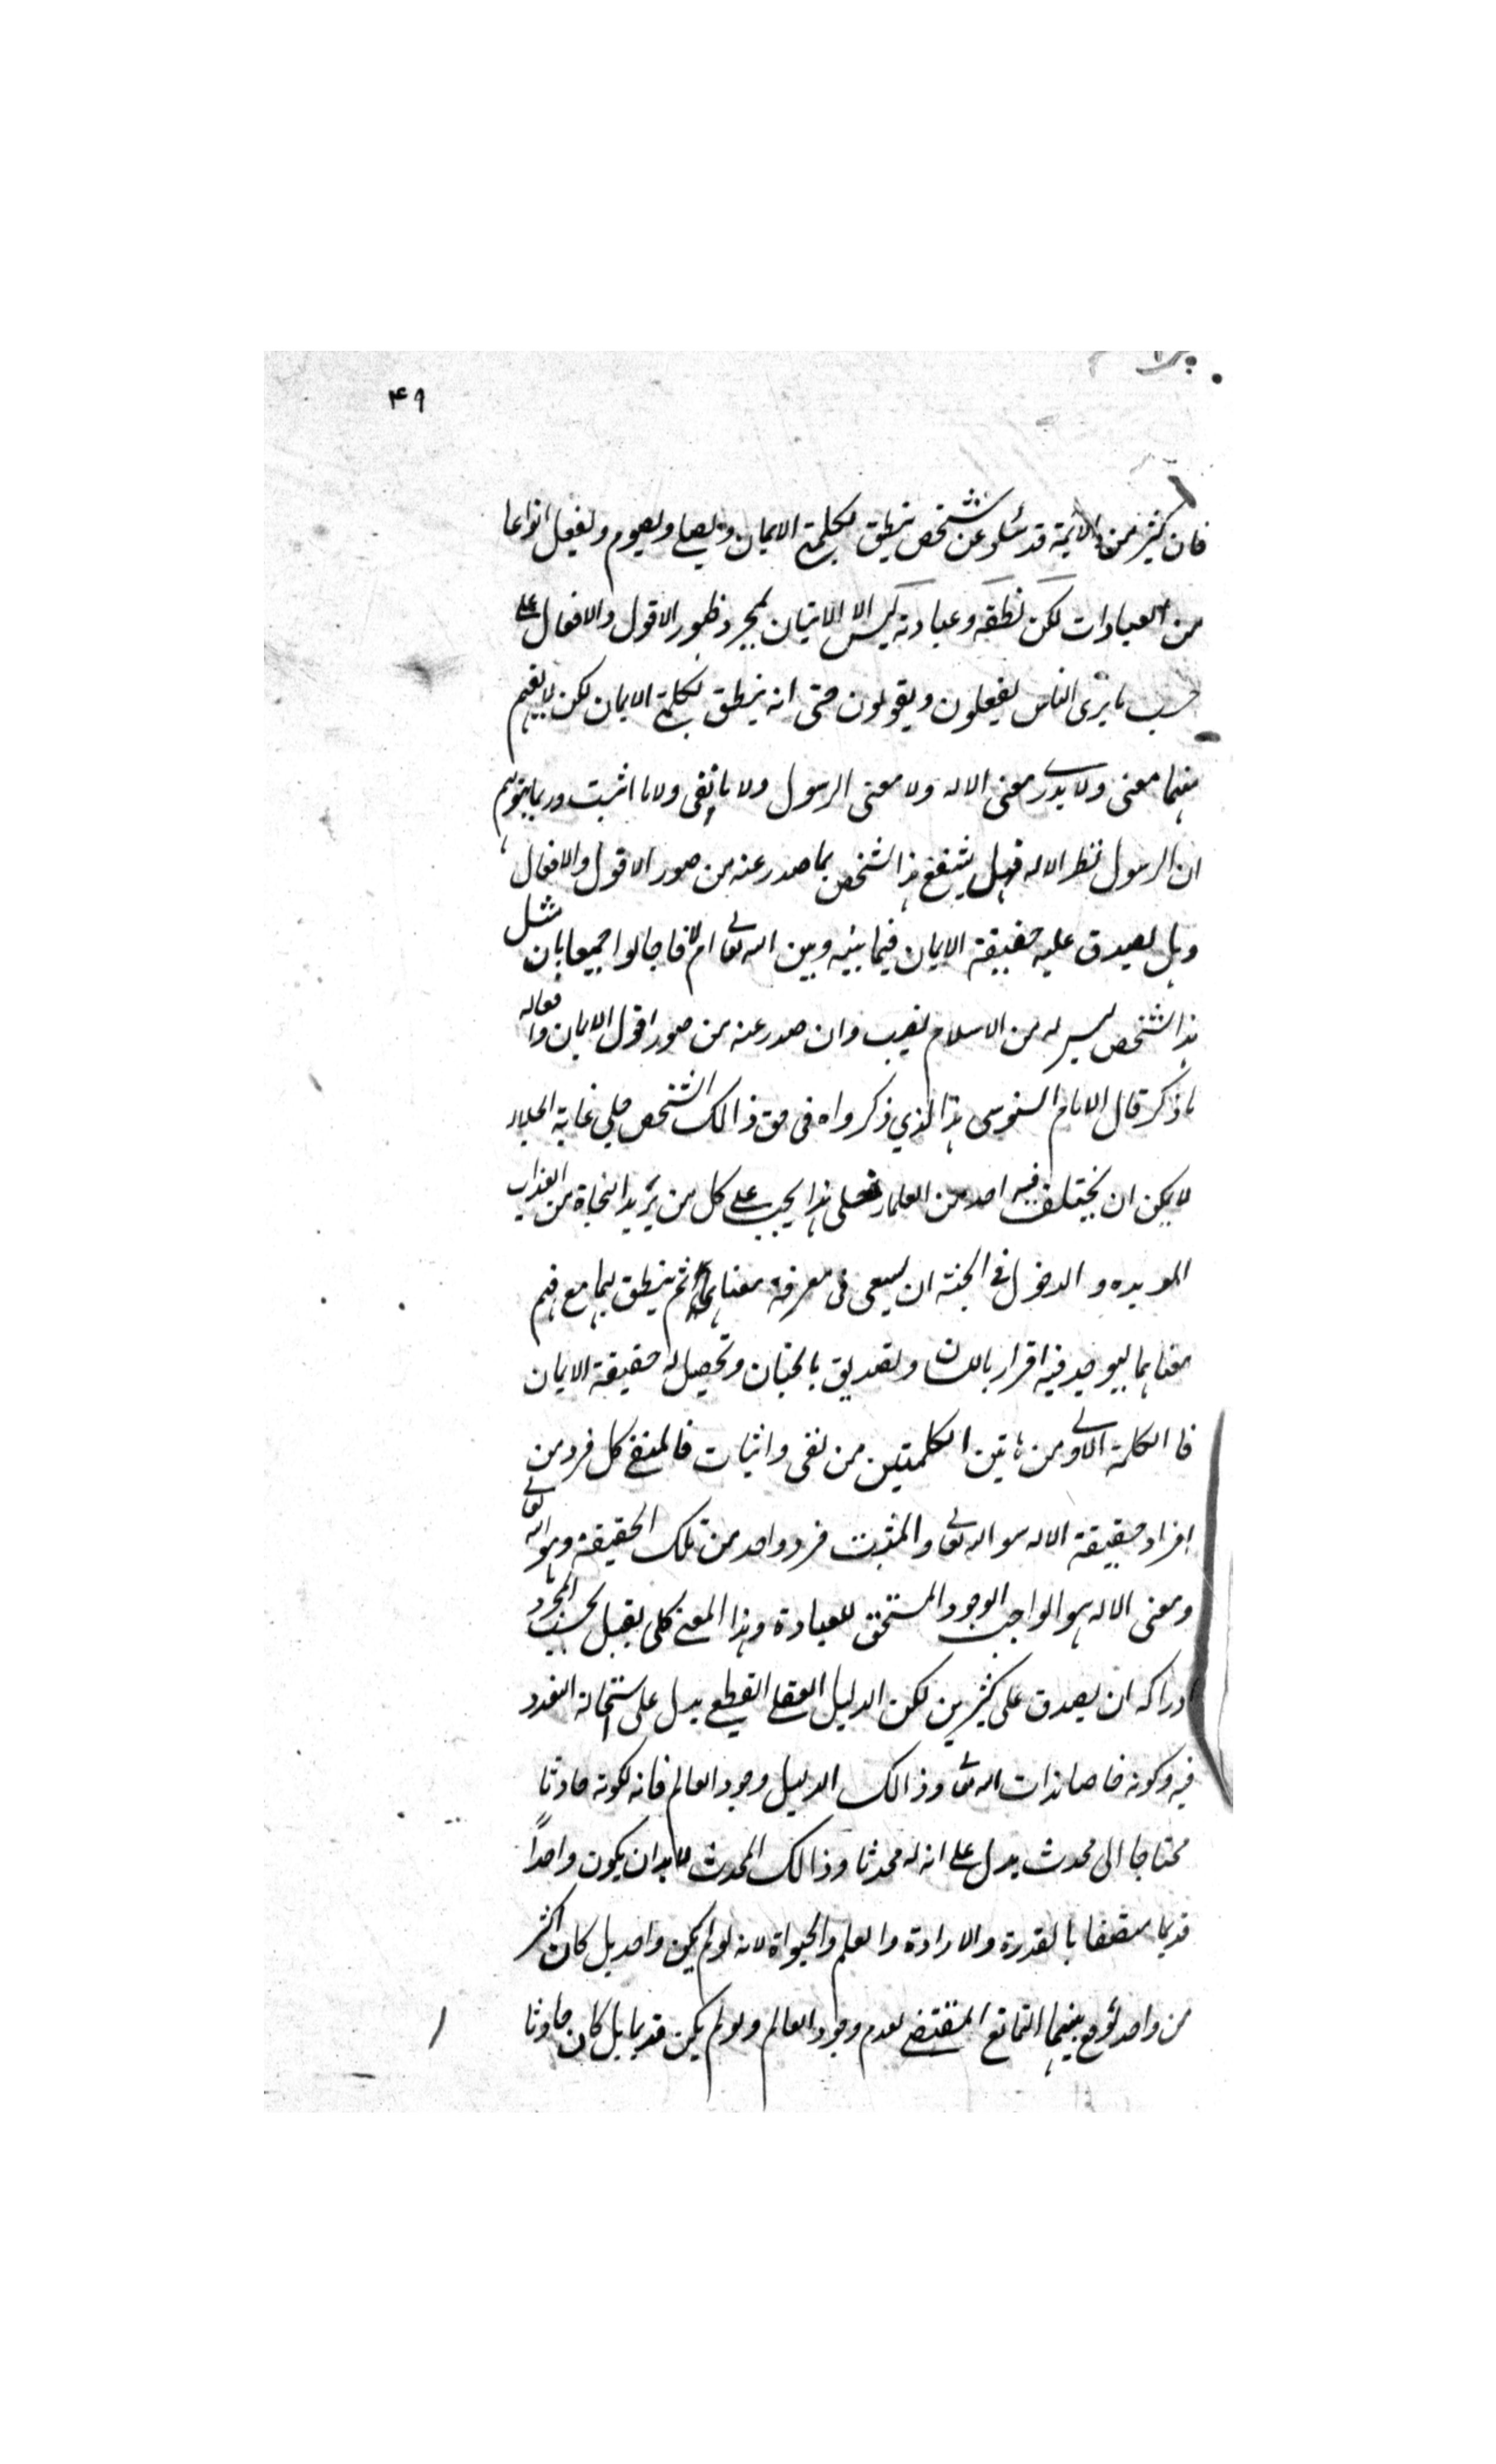 ٤٩
فان كثير من الائمة قد سئلو عن شخص ينطق بكلمة الايمان ويصلي ويصوم ويفعل انواعا
من العبادات لكن نطقه وعبادته ليس الا الاتيان بمجرد ظهور الاقول والافعال على
حسب ما يرى الناس يفعلون ويقولون حتى انه ينطق بكلمة الايمان لكن لا يفهم
منهما معنى ولا يدرے معنى الاله ولا معنى الرسول ولا ما نفى ولا ما اثبت وربما يتوهم
ان الرسول نظر الاله فهل ينتفع هذا الشخص بما صدر عنه من صور الاقول والافعال
وهل يصدق عليه حقيقة الايمان فيما بينه وبين الله تعالى ام لا فاجابوا جميعا بان مثل
هذا الشخص ليس له من الاسلام نصيب وان صدر عنه من صور اقول الايمان وافعاله
ما ذكر قال الامام السنوسى هذا الذي ذكرواه فى حق ذالك الشخص جلي غاية الجلاء
لا يمكن ان يختلف فيه احد من العلماء فعلى هذا يجب على كل من يريد النجاة من العذاب
الموبده والدخول فى الجنة ان يسعى فى معرفة معناهما ثم ينطق بهما مع فهم
معناهما ليوجد فيه اقرار باللسان وتصديق بالجنان وتحصيل له حقيقة الايمان
فا الكلمة الاولى من هاتين الكلمتين من نفى واثبات فالمنفے كل فرد من
افراد حقيقة الاله سوا الله تعالى والمثبت فرد واحد من تلك الحقيقة وهو الله تعالى
ومعنى الاله هو الواجب الوجود المستحق للعبادة وهذا المعنے كلى يقبل بحسب المجرد
ادراكه ان يصدق على كثيرين لكن الدليل العقلے القطعے يدل على استحالة التعدد
فيه وكونه خاصا بذات الله تعالى وذالك الدليل وجود العالم فانه لكونه حادثا
محتاجا الى محدث يدل على انه له محدثا وذالك المحدث لا بد ان يكون واحداً
قديما متصفا بالقدرة والارادة والعلم والحيواة لانه لو لم يكن واحد بل كان اكثر
من واحد لوقع بينهما التمانع المقتضے لعدم وجود العالم ولو لم يكن قديما بل كان حادثا